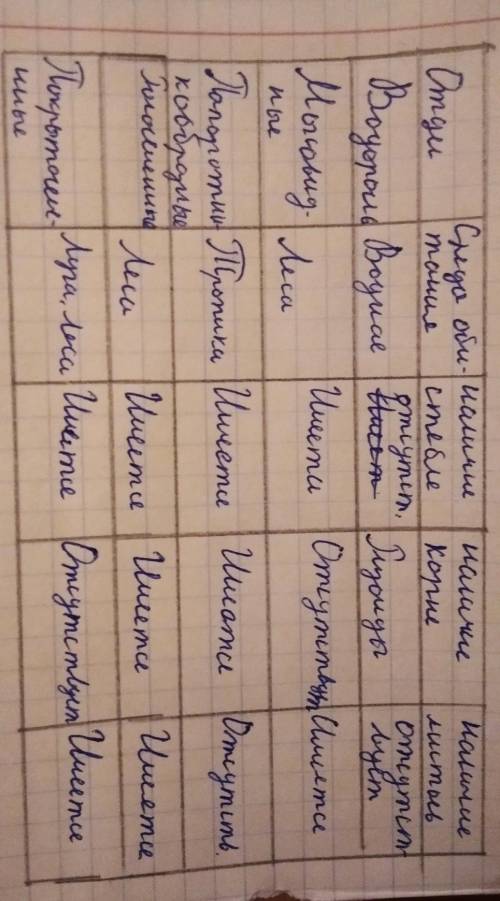 Отдел
Среда оби-
тания
наличие
стебле
наличие
корне
наличие
листьев
Водоросль
Водная
отсутст.
Ризоиды
отсутст-
вует
Моховид-
ные
Леса
Имется
Отсутствует
Имется
Папоротни-
кообразные
Тропика
Имеется
Имеется
Отсутств.
Леса
Имеется
Имеется
Имеется
Покрытосем-
нные
Луга, Леса
Имеется
Отсутствует
Имеется